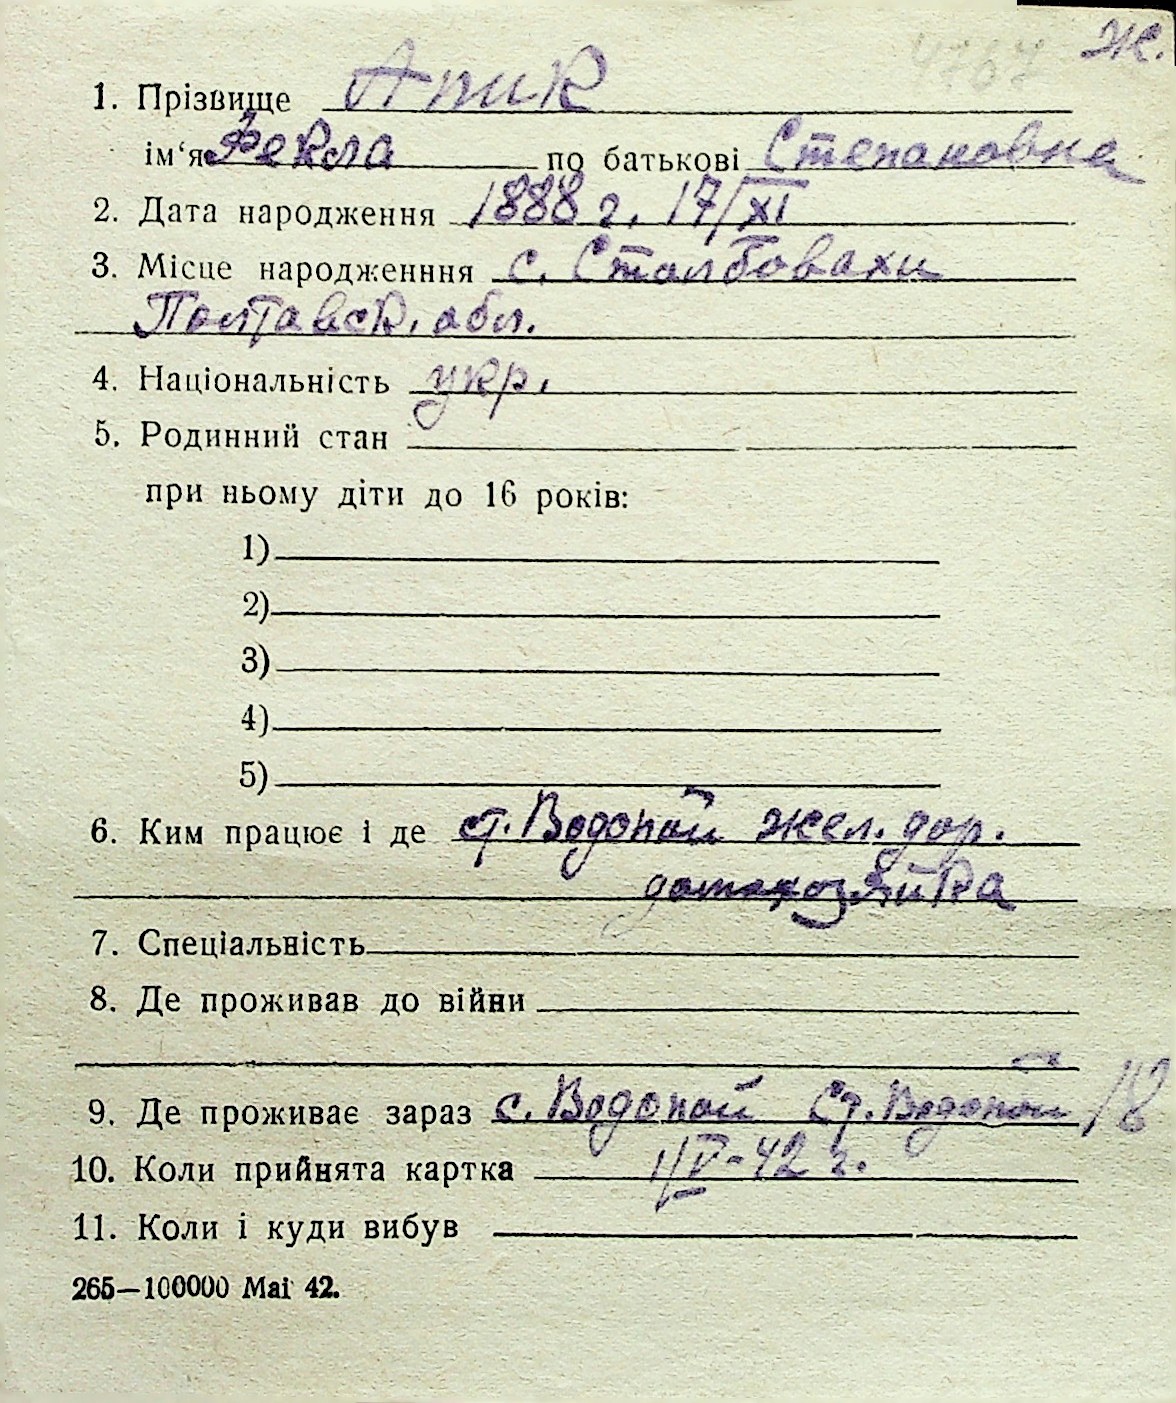 4767 Ж.
1. Прізвище Апик
ім‘я Фекла по батькові Степановна
2. Дата народження 1888 г. 17/XI
3. Місце народженння с. Столбовахи
Полтавск. обл.
4. Національність укр.
5. Родинний стан
при ньому діти до 16 років:
1)
2)
3)
4)
5)
6. Ким працює і де ст. Водопой жел. дор.
домохозяйка
7. Спеціальність
8. Де проживав до війни
9. Де проживає зараз с. Водопой Ст. Водопой /18
10. Коли прийнята картка 1/V-42 г.
11. Коли і куди вибув
265—100000 Mai 42.